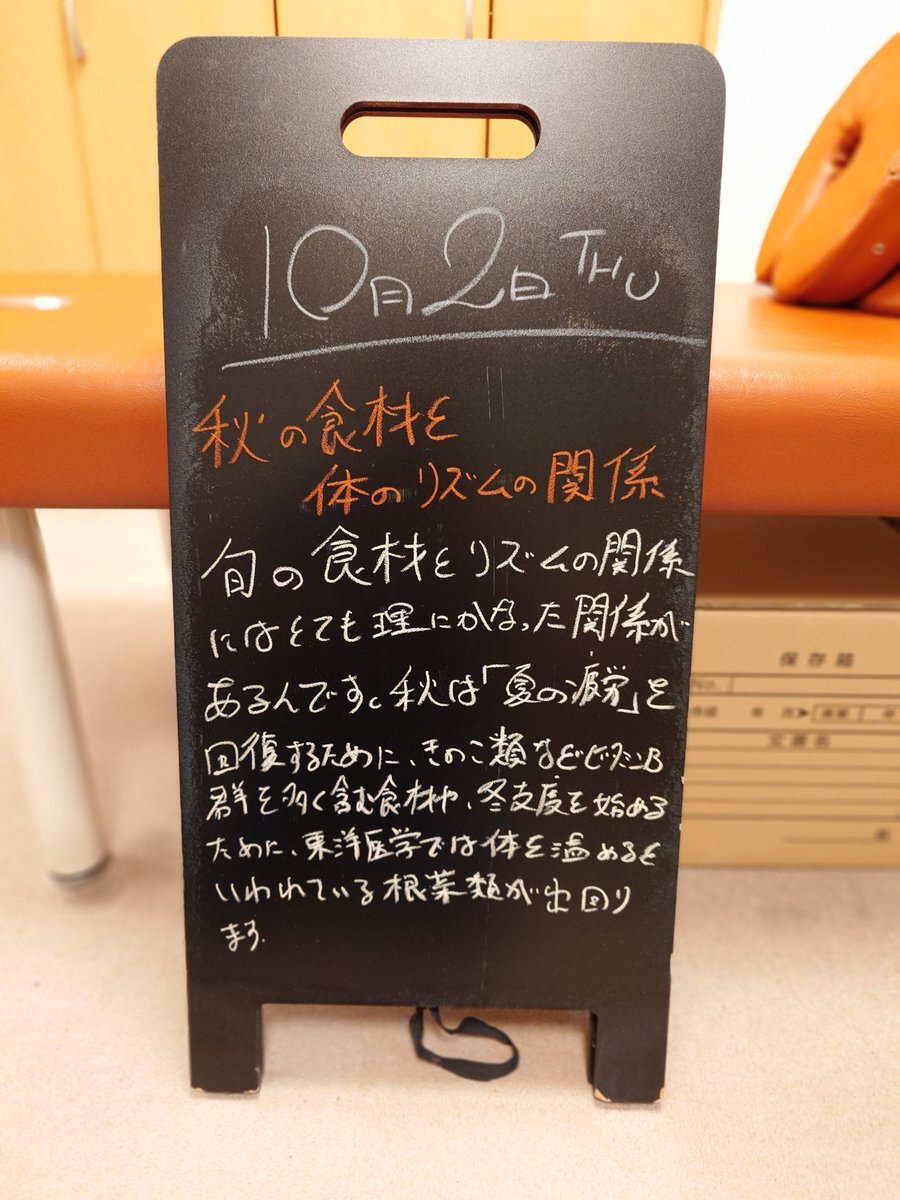 10月2日 THU
秋の食材と
体のリズムの関係
旬の食材とリズムの関係
にはとても理にかなった関係が
あるんです。秋は「夏の疲労」を
回復するために、きのこ類などビタミンB
群を多く含む食材や、冬支度を始める
ために、東洋医学では体を温めると
いわれている根菜類が出回り
ます.
保存箱
No.
年 月
年
文書名